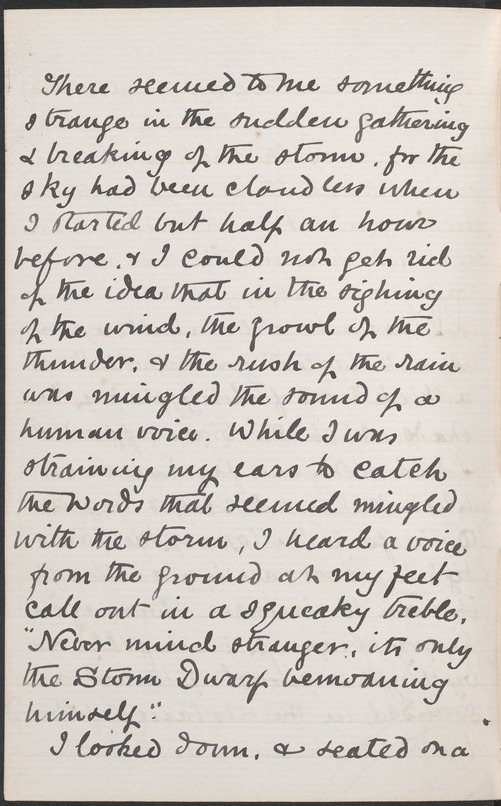 There seemed to me something
strange in the sudden gathering
& breaking of the storm, for the
sky had been cloudless when
I started but half an hour
before, & I could not get rid
of the idea that in the sighing
of the wind, the growl of the
thunder, & the rush of the rain
was mingled the sound of a
human voice. While I was
straining my ears to catch
the words that seemed mingled
with the storm, I heard a voice
from the ground at my feet
call out in a squeaky treble,
"Never mind stranger, its only
the Storm Dwarf bemoaning
himself"
I looked down, & seated on a